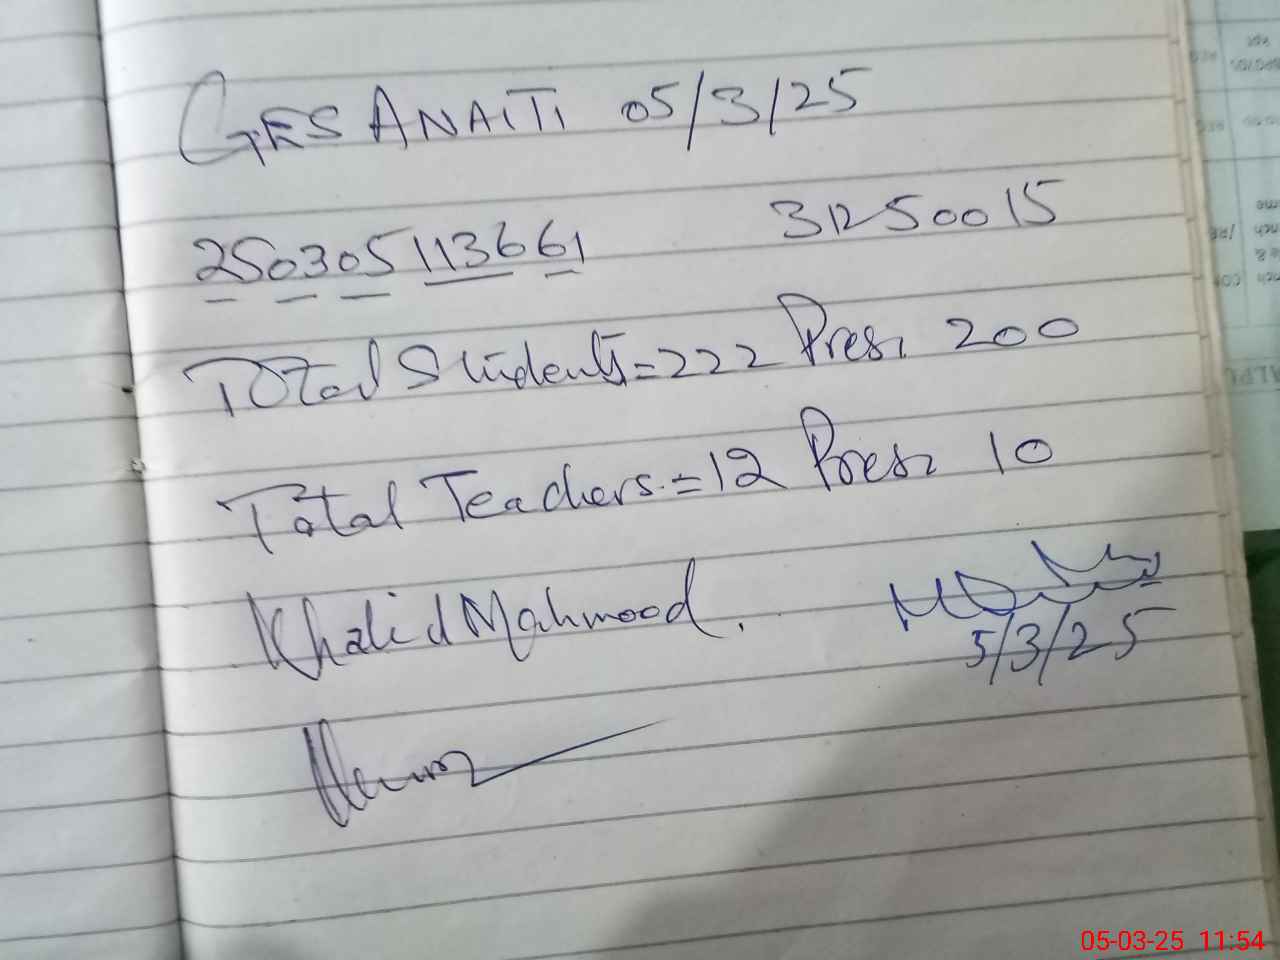 GES ANAITI 05/3/25
250305113661 31250015
Total Students = 222 Pres. 200
Total Teachers. = 12 Pres. 10
Khalid Mahmood.
5/3/25
05-03-25 11:54